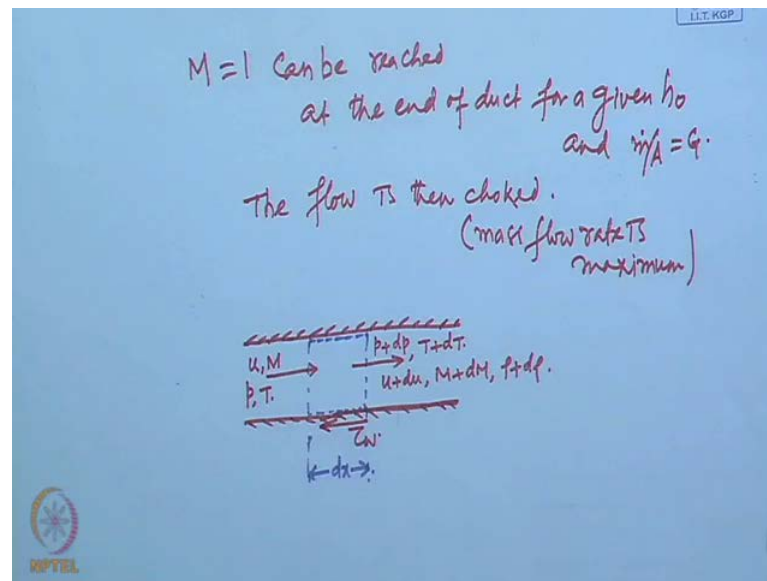 I.I.T. KGP
M = 1 Can be reached
at the end of duct for a given h₀
and ṁ/A = G.
The flow is then choked.
(mass flow rate is
maximum)
u, M
p, T.
p+dp, T+dT.
u+du, M+dM, ρ+dρ.
τw.
dx
NPTEL